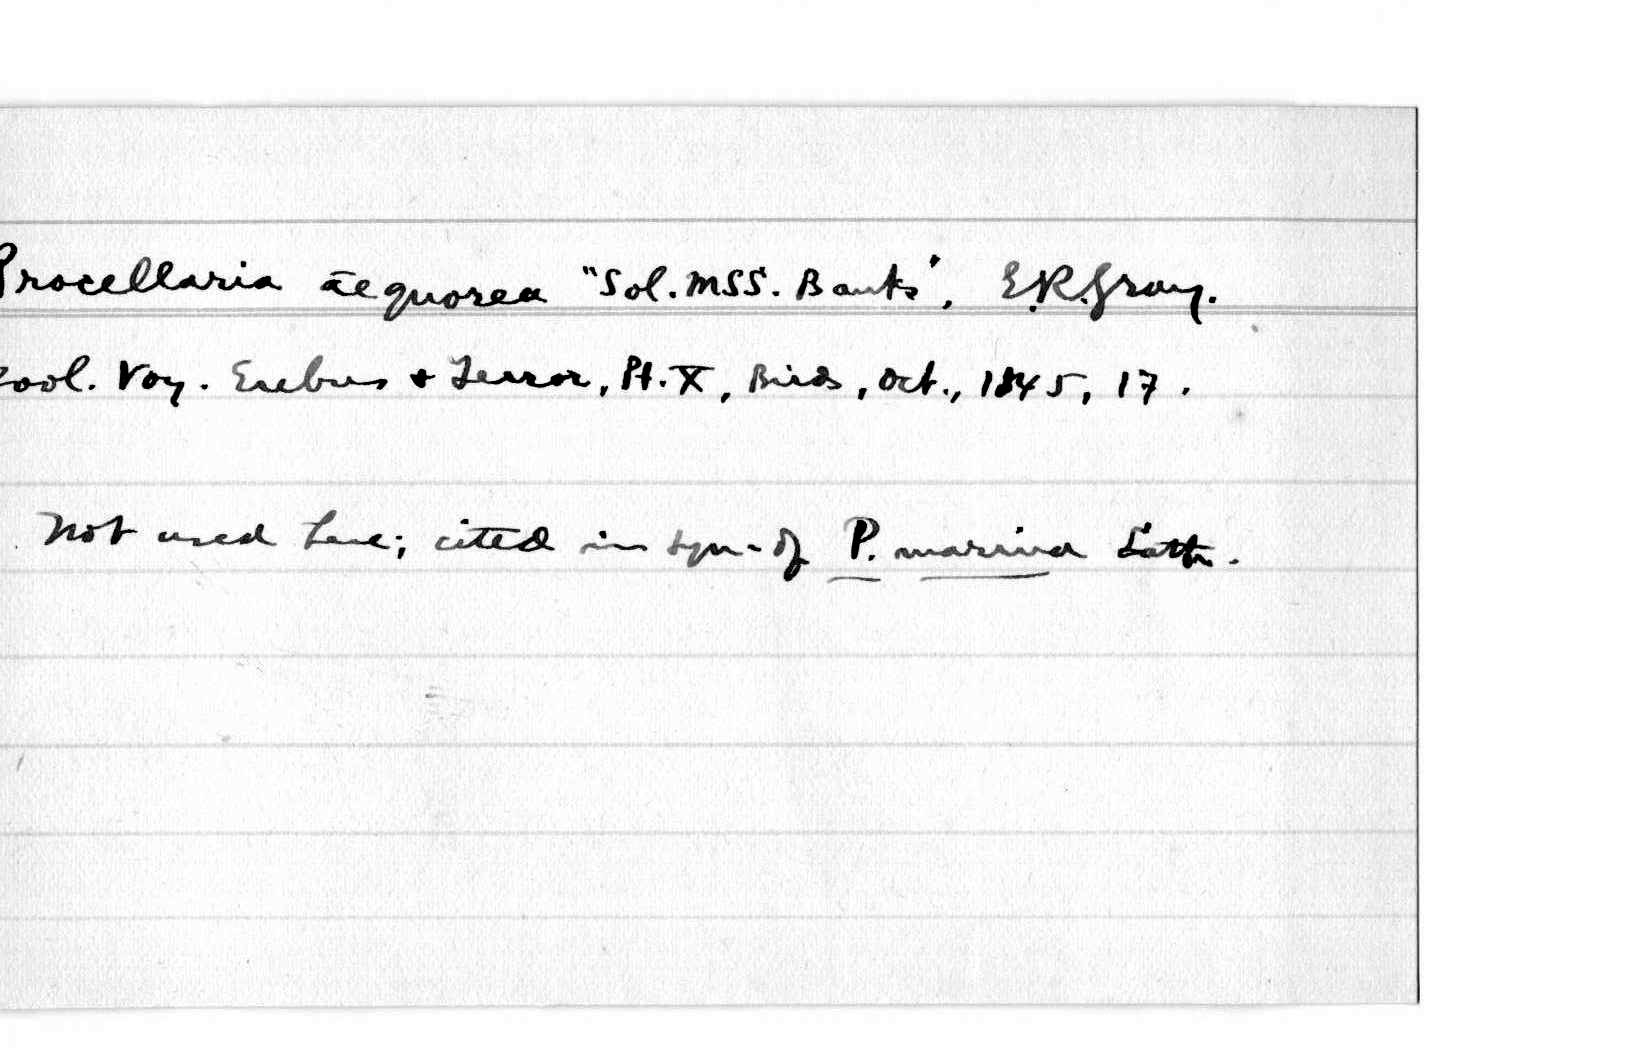 Procellaria aequorea "Sol. MSS. Banks", G.R. Gray.
Zool. Voy. Erebus & Terror, Pt. X, Birds, Oct., 1845, 17.
Not used here; cited in syn. of P. marina Lath.